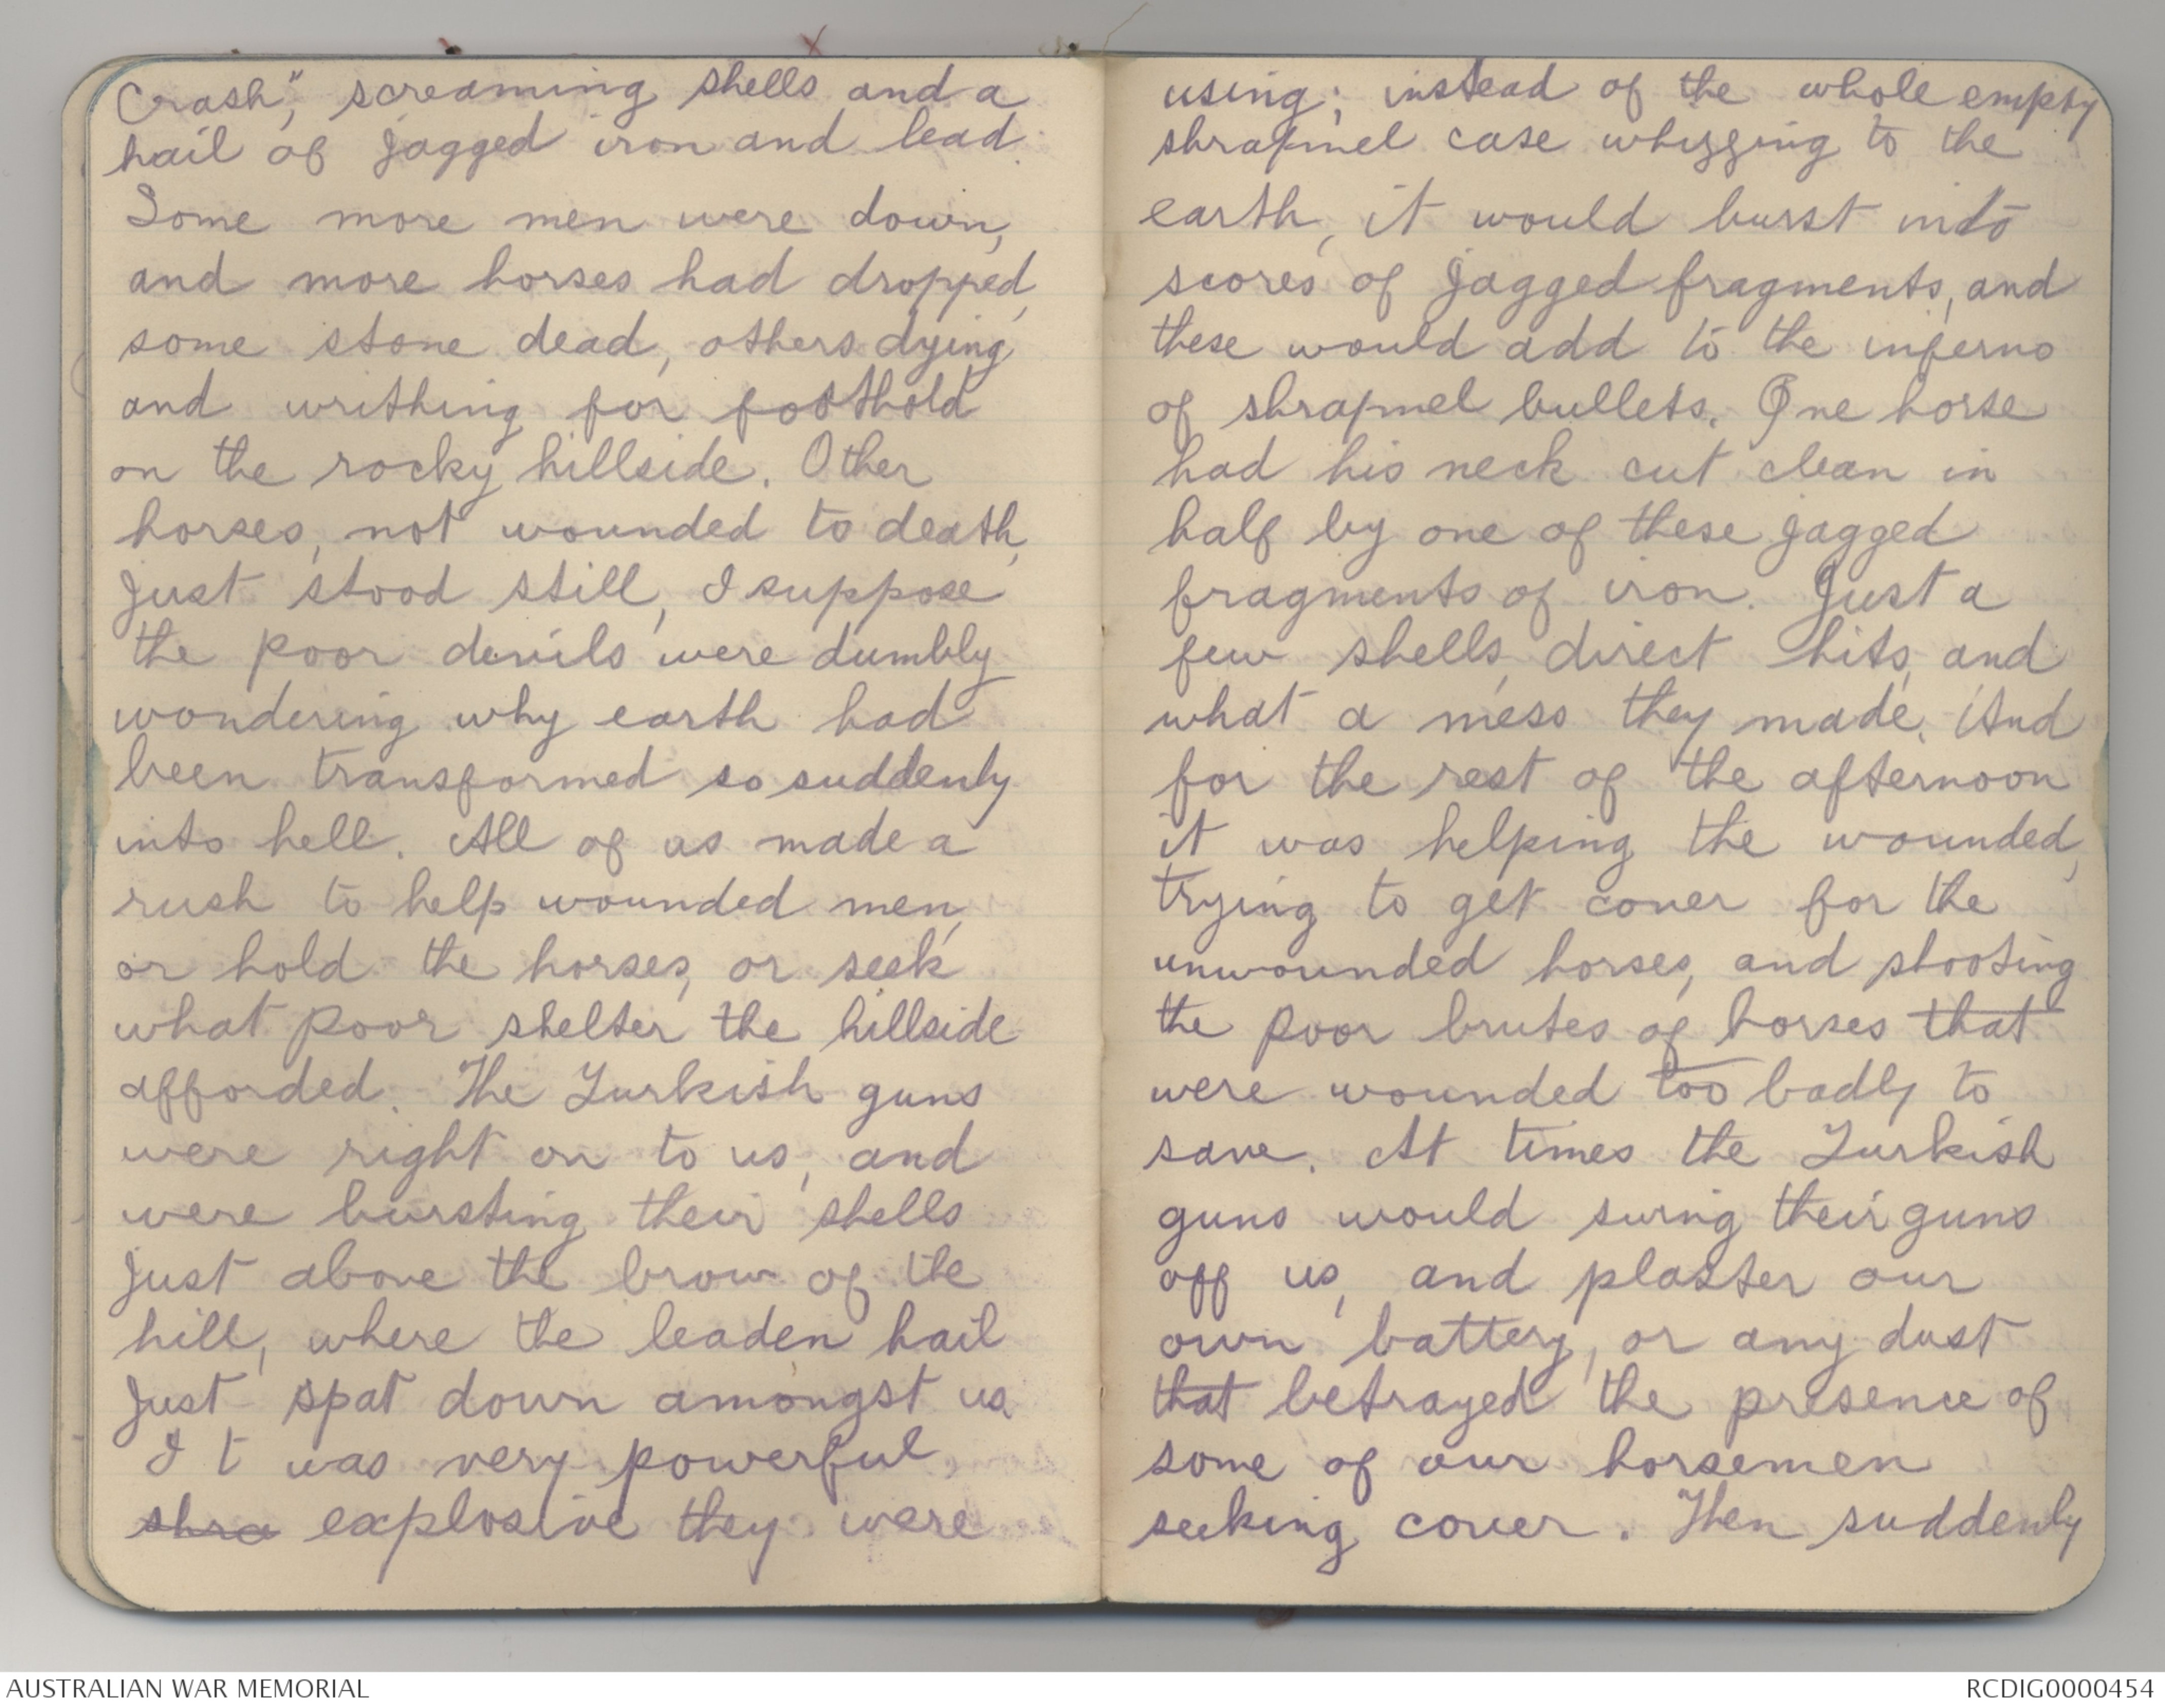 Crash", screaming shells and a
hail of jagged iron and lead.
Some more men were down,
and more horses had dropped,
some stone dead, others dying
and writhing for foothold
on the rocky hillside. Other
horses, not wounded to death,
just stood still, I suppose
the poor devils were dumbly
wondering why earth had
been transformed so suddenly
into hell. All of us made a
rush to help wounded men,
or hold the horses, or seek
what poor shelter the hillside
afforded. The Turkish guns
were right on to us, and
were bursting their shells
just above the brow of the
hill, where the leaden hail
just spat down amongst us.
It was very powerful
shra explosive they were
using; instead of the whole empty
shrapnel case whizzing to the
earth, it would burst into
scores of jagged fragments, and
these would add to the inferno
of shrapnel bullets. One horse
had his neck cut clean in
half by one of these jagged
fragments of iron. Just a
few shells, direct hits, and
what a mess they made. And
for the rest of the afternoon
it was helping the wounded,
trying to get cover for the
unwounded horses, and shooting
the poor brutes of horses that
were wounded too badly to
save. At times the Turkish
guns would swing their guns
off us, and plaster our
own battery, or any dust
that betrayed the presence of
some of our horsemen
seeking cover. Then suddenly
AUSTRALIAN WAR MEMORIAL
RCDIG0000454